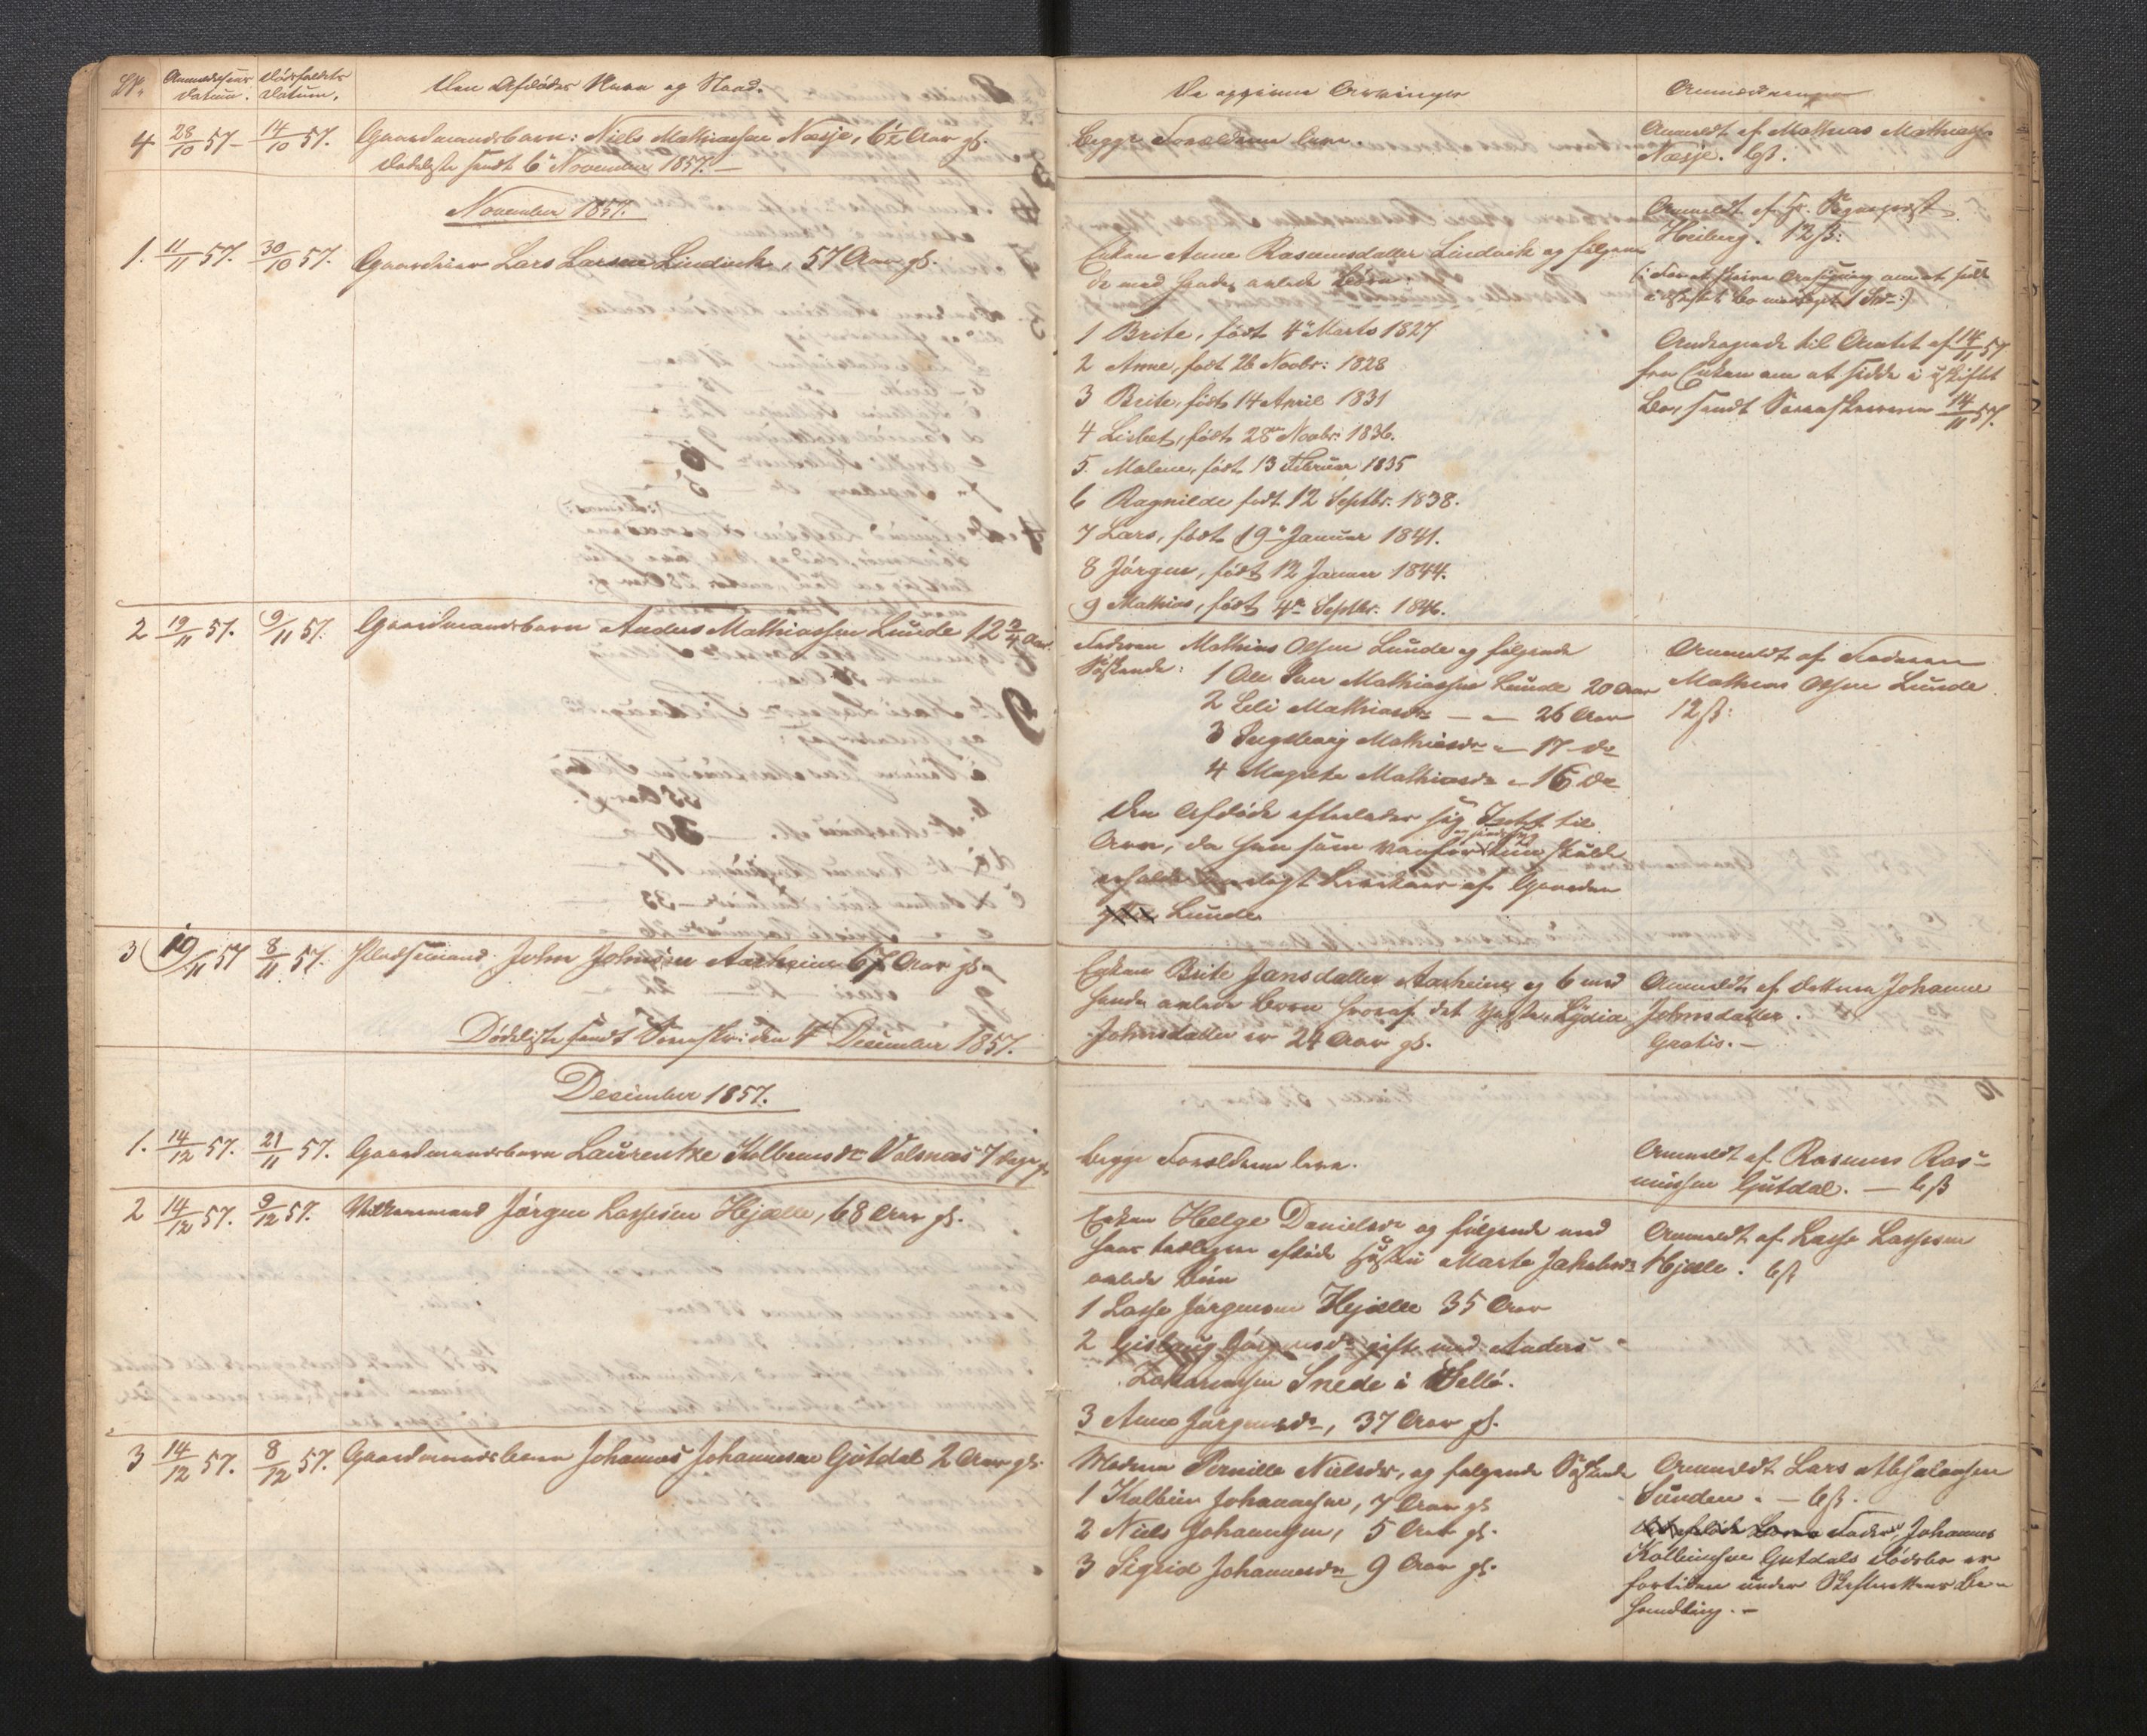 No. Anmeldelsens Datum. Dødsfaldets Datum. Den Afdødes Navn og Stand.
4 28/10 57 - 14/10 57. Gaardmandsbarn: Niels Mathiassen Næsje, 6½ Aar gl.
Dødsliste sendt 6 November 1857. -
November 1857.
1. 11/11 57. 30/10 57. Gaardeier Lars Larsen Lindvik, 57 Aar gl.
2 19/11 57. 9/11 57. Gaardmandsbarn Anders Mathiassen Lunde 12 3/4 Aar.
3 19/11 57 8/11 57. Pladsemand John Johnsen Aarheim 67 Aar gl.
Dødsliste sendt Sorenskr: den 4 December 1857.
December 1857.
1. 14/12 57. 21/11 57. Gaardmandsbarn Laurentze Kolbensdr Valsnæs 7 Dage gl
2 14/12 57. 9/12 57. Jørgen Lassesen Hjælle, 68 Aar gl.
3 14/12 57. 8/12 57. Gaardmandsbarn Johannes Johannesen Gutdal 2 Aar gl.
De opgivne Arvinger Anmærkninger
Begge Forældrene leve.
Anmeldt af Mathias Mathiass:
Næsje. 6ß.
Anmeldt af Hr. Sogneprest
Heiberg. 12ß:
Enken Anne Rasmusdatter Lindvik og følgen-
de med hende avlede Børn:
1 Brite, født 4de Marts 1827
2 Anne, født 26 Novbr: 1828
3 Brite, født 14 April 1831
4 Lisbet, født 28de Novbr: 1836.
5. Malene, født 13 Februar 1835
6 Ragnilde født 12 Septbr. 1838.
7 Lars, født 19de Januar 1841.
8 Jørgen, født 12 Januar 1844.
9 Mathias, født 4de Septbr. 1846.
Andragende til Amtet af 14/11 57
fra Enken om at sidde i uskiftet
Bo, sendt Sorenskriveren 14/11 57.
Faderen Mathias Olsen Lunde og følgende
Søskende: 1 Ole Mathiassen Lunde 20 Aar
2 Eli Mathiasdr - " - 26 Aar
3 Ingeborg Mathiasdr " - 17 do
4 Magrete Mathiasdr - " 16 do
Den Afdøde efterlader sig Intet til
Arv, da han som vanfør kun skulde
erholde Levekaar af Gaarden
Lunde
Anmeldt af Faderen
Mathias Olsen Lunde
12ß:
Enken Brite Jansdatter Aarheim og 6 med
hende avlede Børn hvoraf det yngste, Lydia
Johnsdatter er 24 Aar gl.
Anmeldt af Datteren Johanne
Johnsdatter.
Gratis. -
Begge Forældrene leve.
Anmeldt af Rasmus Ras-
mussen Gutdal. - 6ß
Enken Helge Danielsdr og følgende med
hans tidligere afdøde Hustru Marte Jakobsdr
avlede Børn
1 Lasse Jørgensen Hjælle 35 Aar
2 Jørgensdr gift med Anders
Zakariassen Snede i Sellø.
3 Anne Jørgensdr, 37 Aar gl.
Anmeldt af Lasse Lassesen
Hjælle. 6ß
Moderen Pernille Nielsdr, og følgende Søskende
1 Kolbein Johannesen, 7 Aar gl
2 Niels Johannesen, 5 Aar gl.
3 Sigrid Johannesdr 9 Aar gl.
Anmeldt Lars Absalonsen
Sunden. - 6ß.
Fader, Johannes
Kolbeinsen Gutdals Dødsbo er
fortiden under Skifterettens Be-
handling. -